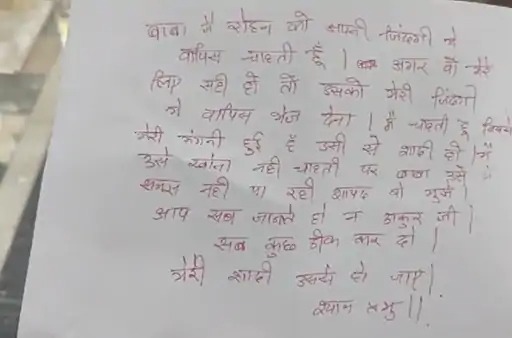 बाबा मैं रोहन को अपनी जिंदगी मे
वापिस चाहती हूँ । अगर वो मेरे
लिए सही हो तो उसको मेरी जिंदगी
मे वापिस भेज देना । मैं चाहती हूँ जिससे
मेरी मंगनी हुई है उसी से शादी हो । मैं
उसे खोना नही चाहती पर बाबा उसे मैं
समझ नही पा रही शायद वो मुझे ।
आप सब जानते हो न ठाकुर जी ।
सब कुछ ठीक कर दो ।
मेरी शादी उससे हो जाए ।
श्याम प्रभु ।।